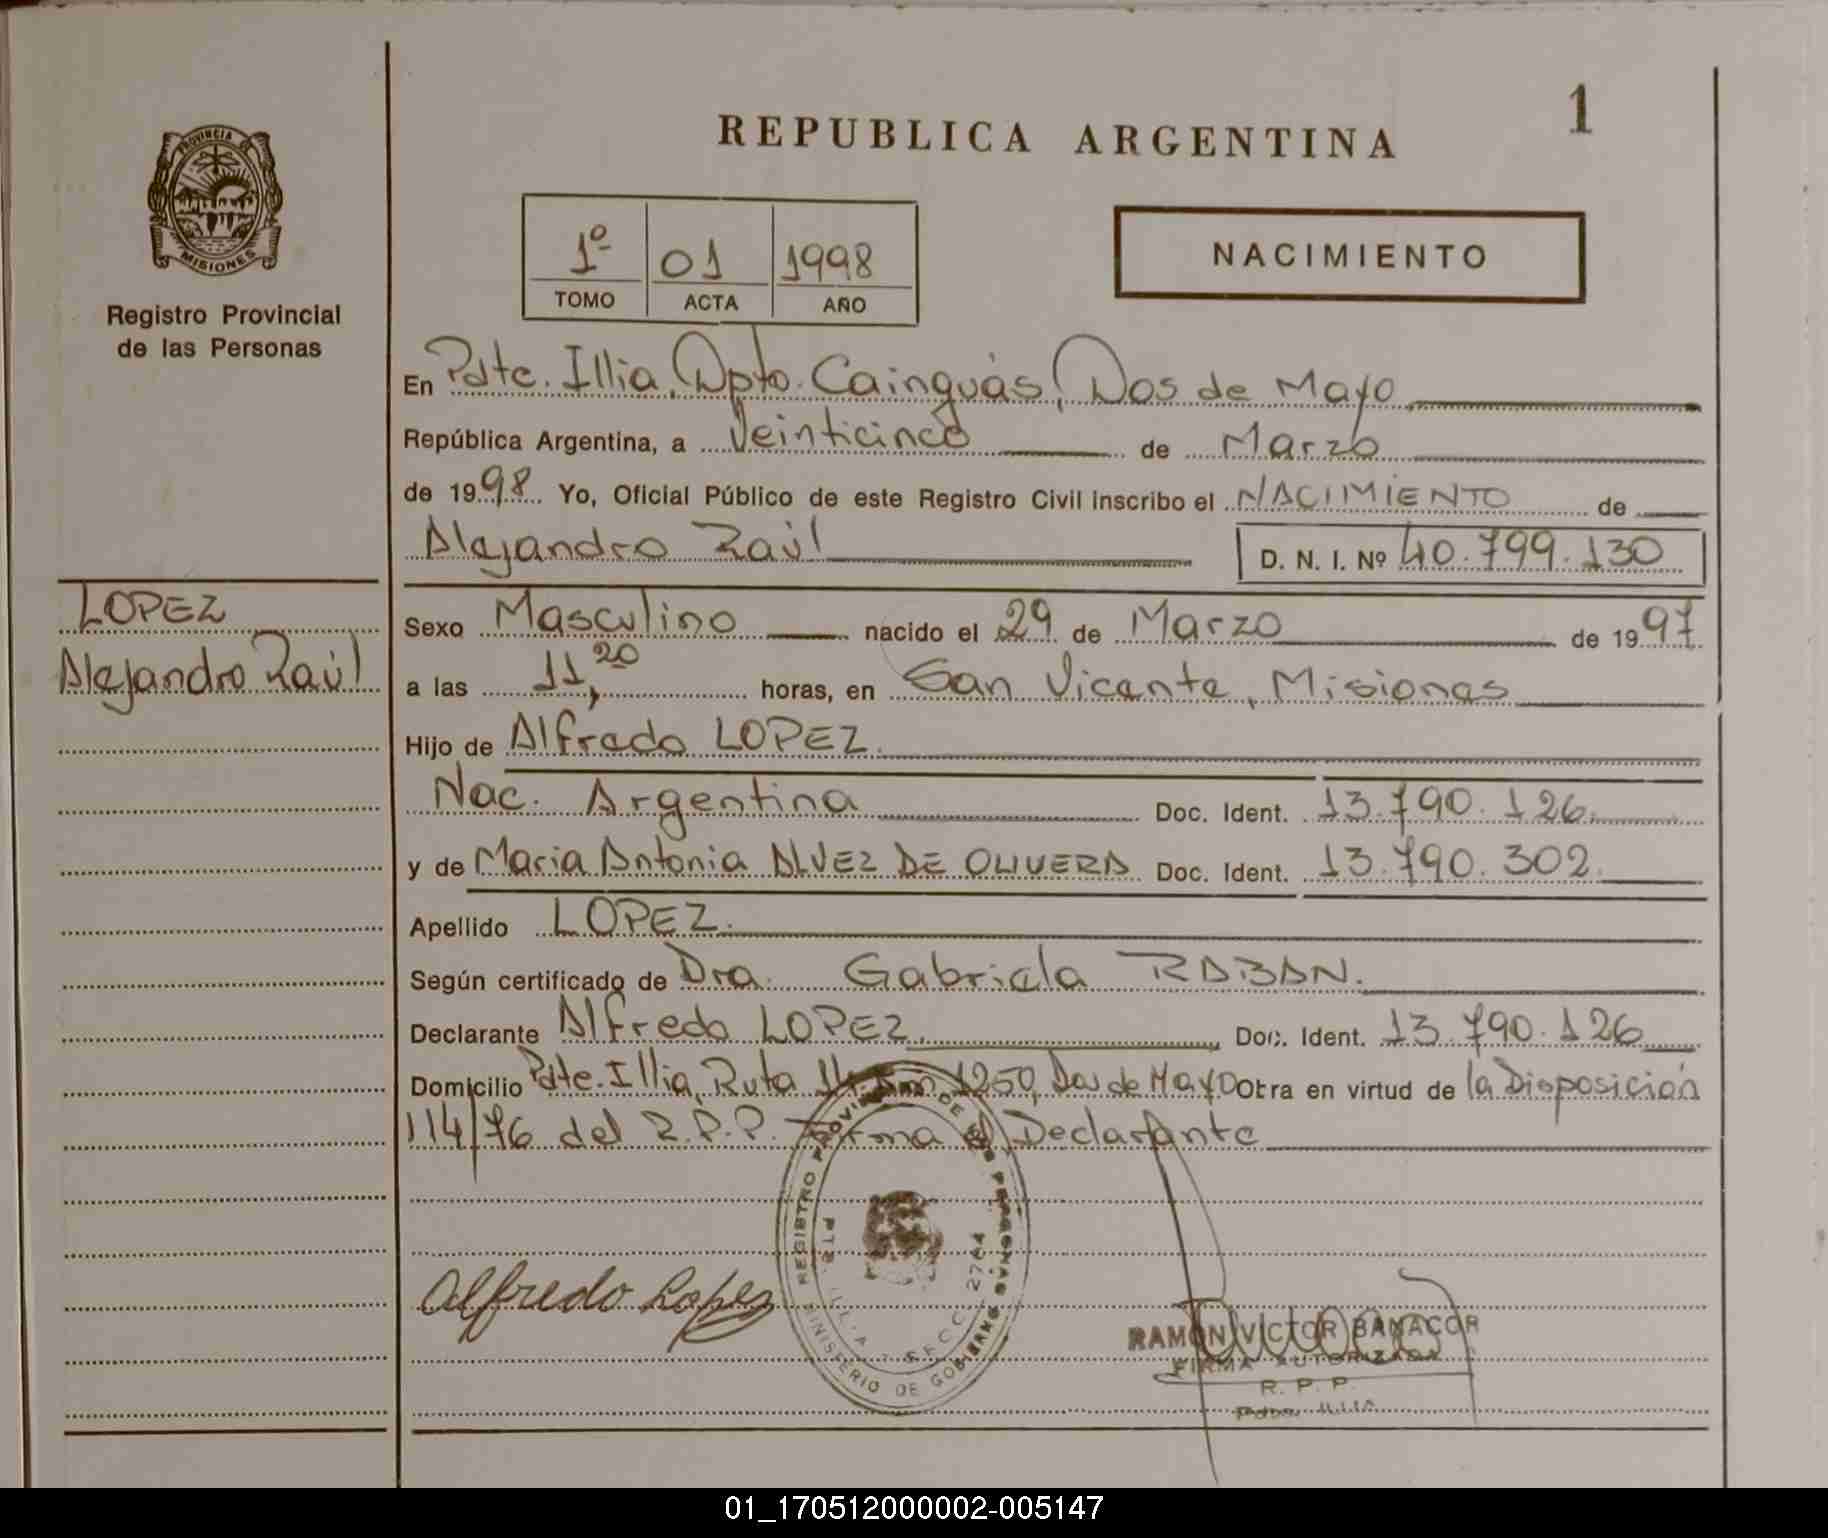 1
REPUBLICA ARGENTINA
PROVINCIA D
MISIONES
Registro Provincial
de las Personas
1º 01 1998
TOMO ACTA AÑO
NACIMIENTO
En Pdte. Illia, Dpto. Cainguás, Dos de Mayo
República Argentina, a Veinticinco de Marzo
de 1998 Yo, Oficial Público de este Registro Civil inscribo el NACIMIENTO de
Alejandro Raúl D. N. I. Nº 40.799.130
LOPEZ
Alejandro Raúl
Sexo Masculino nacido el 29 de Marzo de 1997
a las 11,20 horas, en San Vicente, Misiones
Hijo de Alfredo LOPEZ.
Nac. Argentina Doc. Ident. 13.790.126.
y de Maria Antonia ALVEZ DE OLIVERA Doc. Ident. 13.790.302.
Apellido LOPEZ.
Según certificado de Dra. Gabriela RABAN.
Declarante Alfredo LOPEZ. Doc. Ident. 13.790.126
Domicilio Pdte. Illia, Ruta 14. Km 1250, Dos de Mayo Obra en virtud de la Disposición
114/76 del R.P.P. Firma el Declarante
REGISTRO PROVINCIAL DE LAS PERSONAS
MINISTERIO DE GOBIERNO
PTE. ILLIA - SECC 2764
Alfredo Lopez
RAMON VICTOR BANACOR
FIRMA AUTORIZADA
R. P. P.
Pdte. ILLIA
01_170512000002-005147